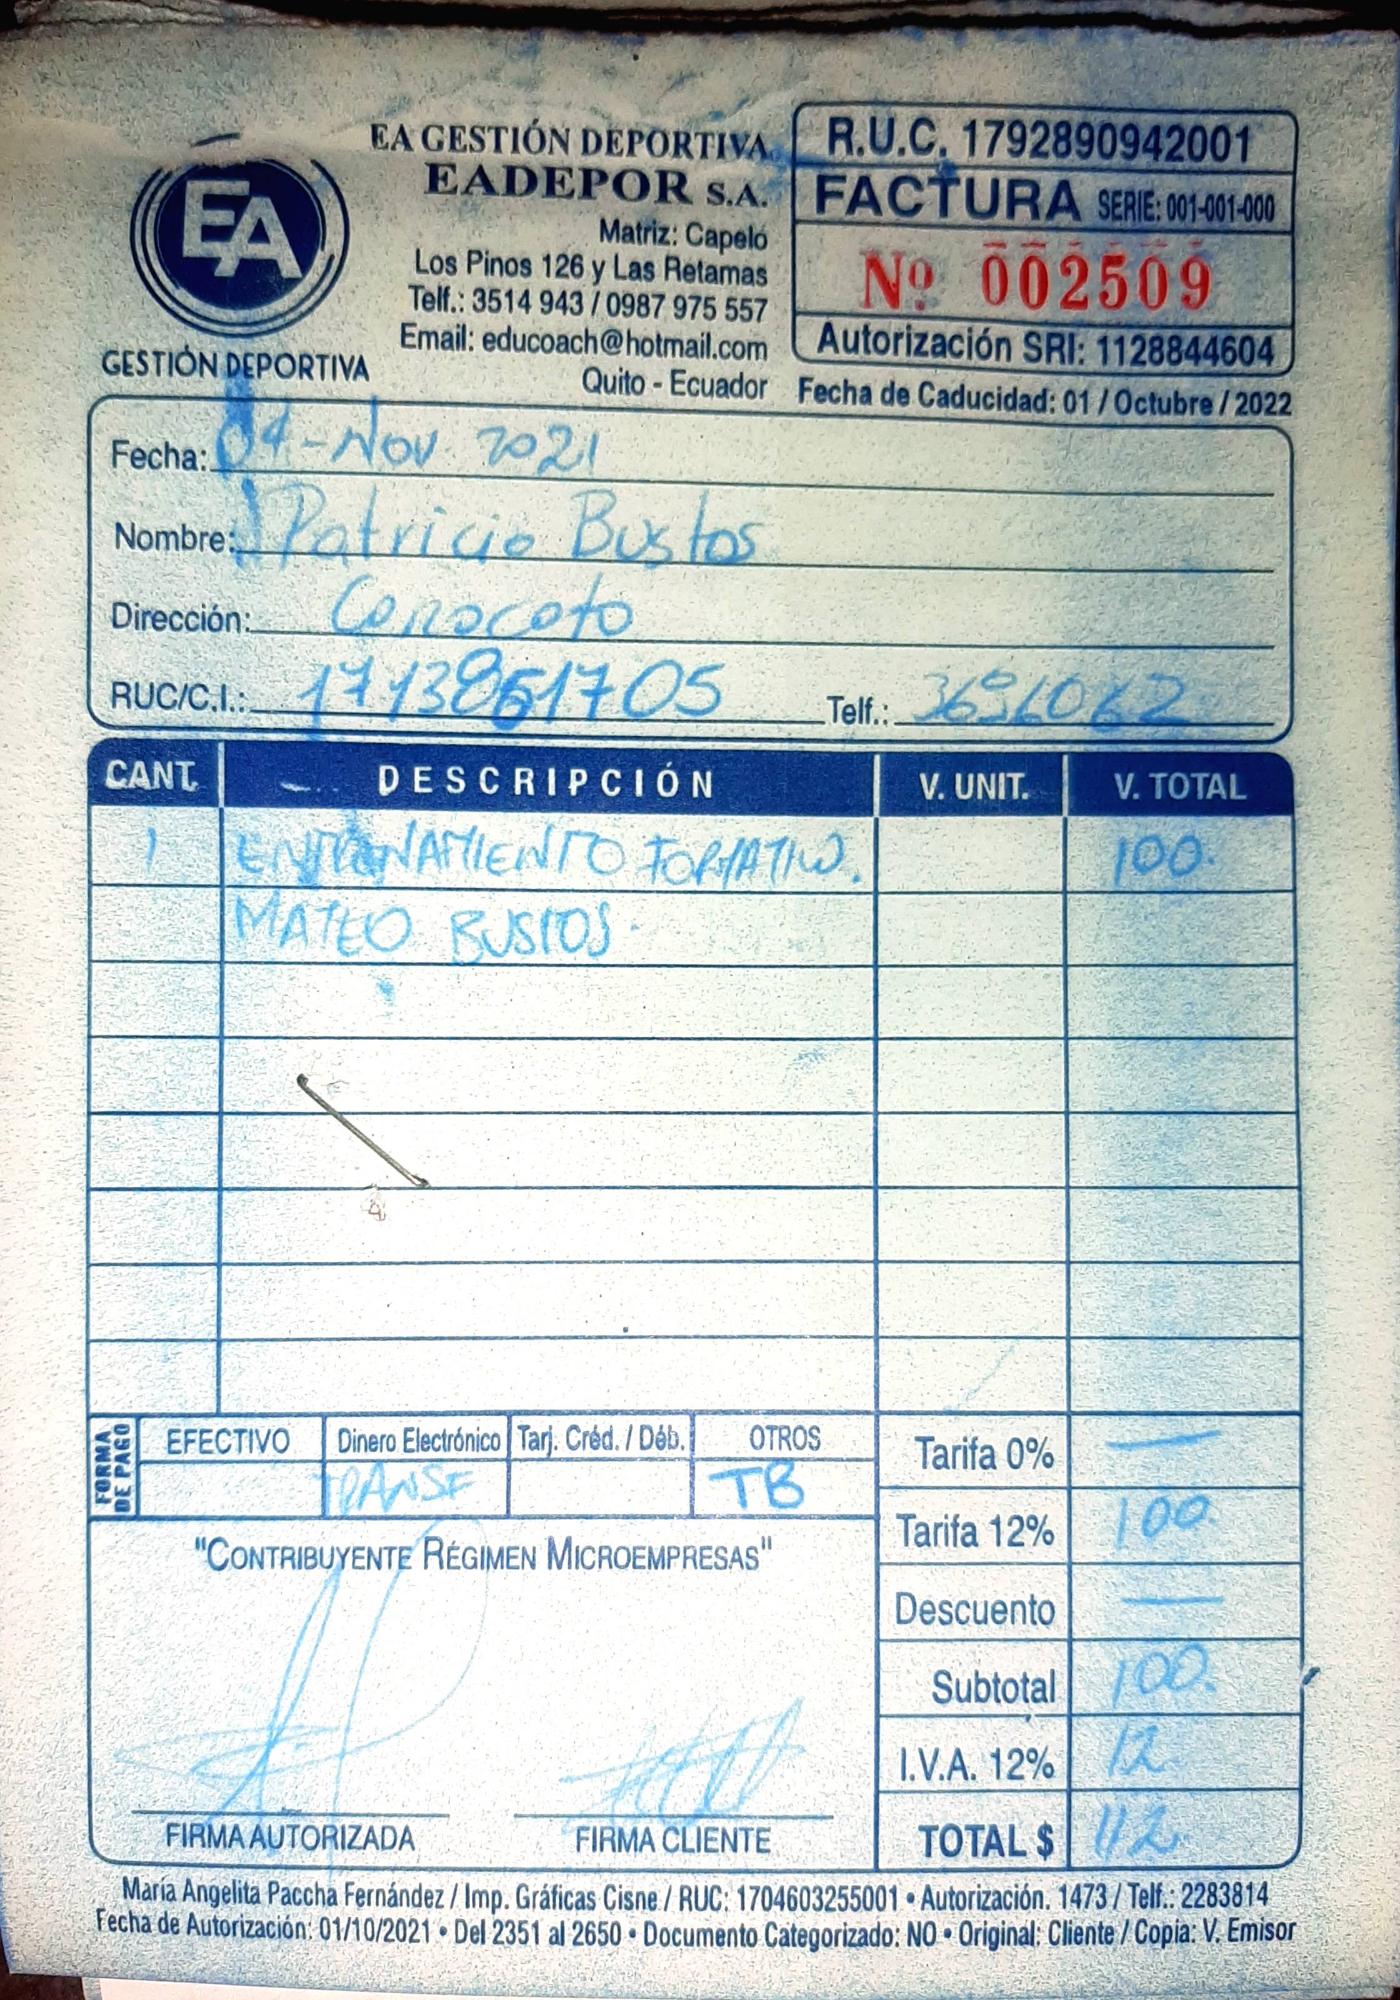 EA
GESTIÓN DEPORTIVA
EA GESTIÓN DEPORTIVA
EADEPOR S.A.
Matriz: Capelo
Los Pinos 126 y Las Retamas
Telf.: 3514 943 / 0987 975 557
Email: educoach@hotmail.com
Quito - Ecuador
R.U.C. 1792890942001
FACTURA SERIE: 001-001-000
Nº 002509
Autorización SRI: 1128844604
Fecha de Caducidad: 01 / Octubre / 2022
Fecha: 04-Nov 2021
Nombre: Patricio Bustos
Dirección: Conocoto
RUC/C.I.: 1713861705 Telf.:
CANT. DESCRIPCIÓN V. UNIT. V. TOTAL
1 ENTRENAMIENTO FORMATIVO. 100.
MATEO BUSTOS.
FORMA DE PAGO
EFECTIVO Dinero Electrónico Tarj. Créd. / Déb. OTROS
TRANSF TB
Tarifa 0% —
Tarifa 12% 100.
Descuento —
Subtotal 100.
I.V.A. 12% 12.
TOTAL $ 112.
"CONTRIBUYENTE RÉGIMEN MICROEMPRESAS"
FIRMA AUTORIZADA FIRMA CLIENTE
María Angelita Paccha Fernández / Imp. Gráficas Cisne / RUC: 1704603255001 • Autorización. 1473 / Telf.: 2283814
Fecha de Autorización: 01/10/2021 • Del 2351 al 2650 • Documento Categorizado: NO • Original: Cliente / Copia: V. Emisor